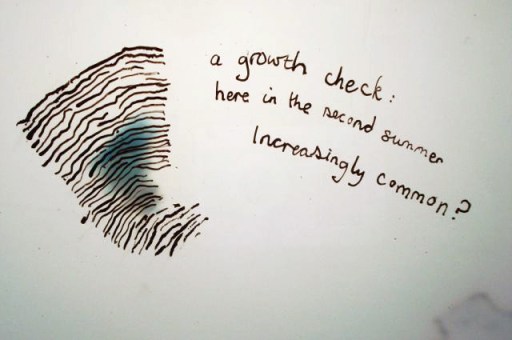 a growth check:
here in the second summer
Increasingly common?